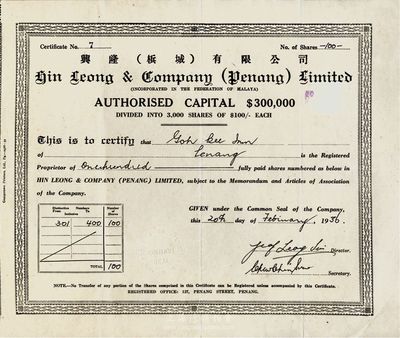 Certificate No. 7 No. of Shares -100-
興隆（梹城）有限公司
Hin Leong & Company (Penang) Limited
(INCORPORATED IN THE FEDERATION OF MALAYA)
AUTHORISED CAPITAL $300,000
DIVIDED INTO 3,000 SHARES OF $100/- EACH
This is to certify that Goh Gee Inn
of Penang is the Registered
Proprietor of Onehundred fully paid shares numbered as below in
HIN LEONG & COMPANY (PENANG) LIMITED, subject to the Memorandum and Articles of Association
of the Company.
GIVEN under the Common Seal of the Company,
this 20th day of February, 1956.
Distinctive Numbers No. of
From To Shares
Inclusive
301 400 100
TOTAL 100
Director.
Secretary.
NOTE.—No Transfer of any portion of the Shares comprised in this Certificate can be Registered unless accompanied by this Certificate.
REGISTERED OFFICE: 127, PENANG STREET, PENANG.